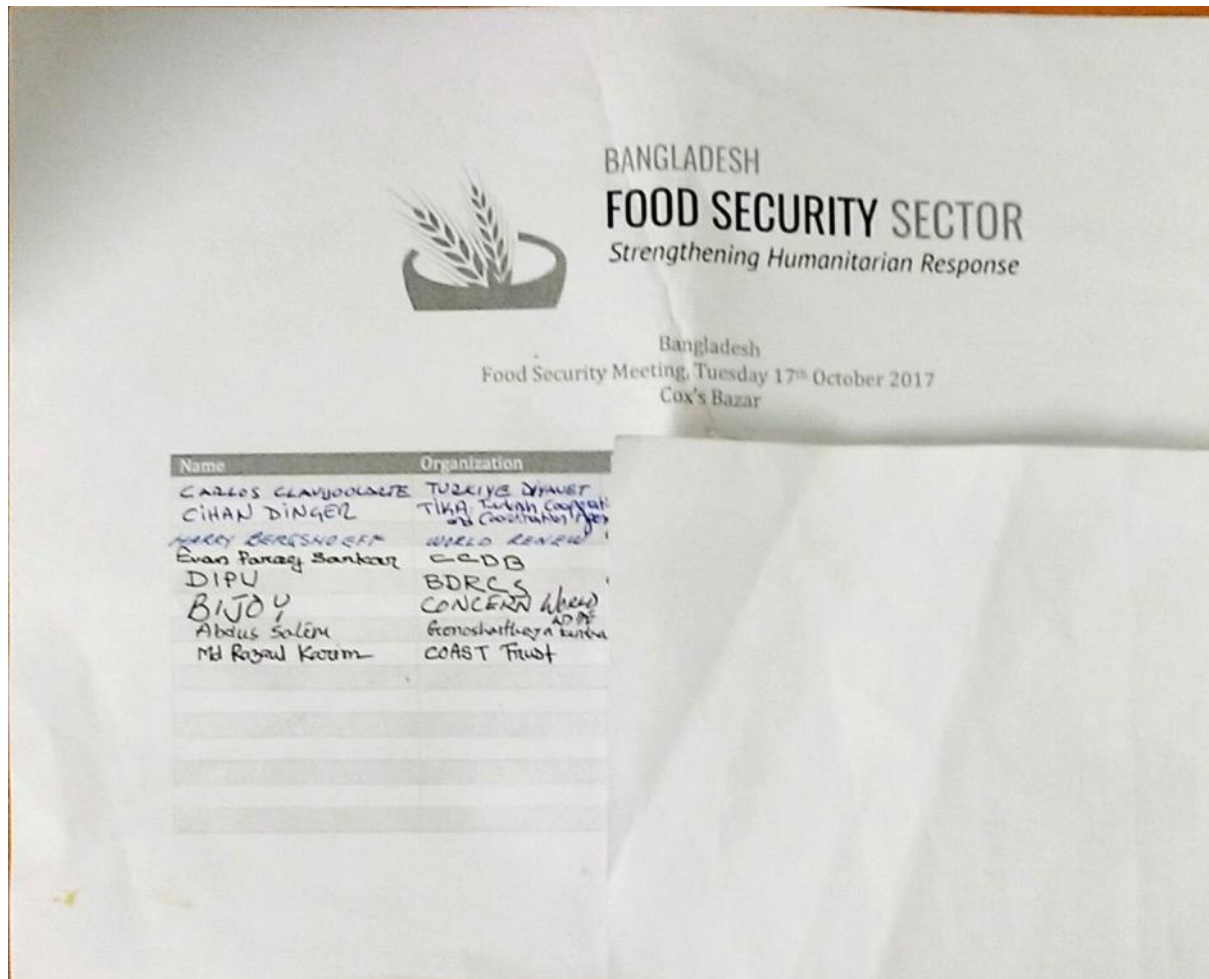 BANGLADESH
FOOD SECURITY SECTOR
Strengthening Humanitarian Response
Bangladesh
Food Security Meeting, Tuesday 17th October 2017
Cox's Bazar
Name Organization
CARLOS TURKIYE DIYANET
CİHAN DİNÇER TİKA Turkish
and Coordination
HARRY BERGSHOEFF WORLD RENEW
Evan Sarkar CCDB
DIPU BDRCS
BIJOY CONCERN
Abdus Salim
Md Razaul Karim COAST Trust